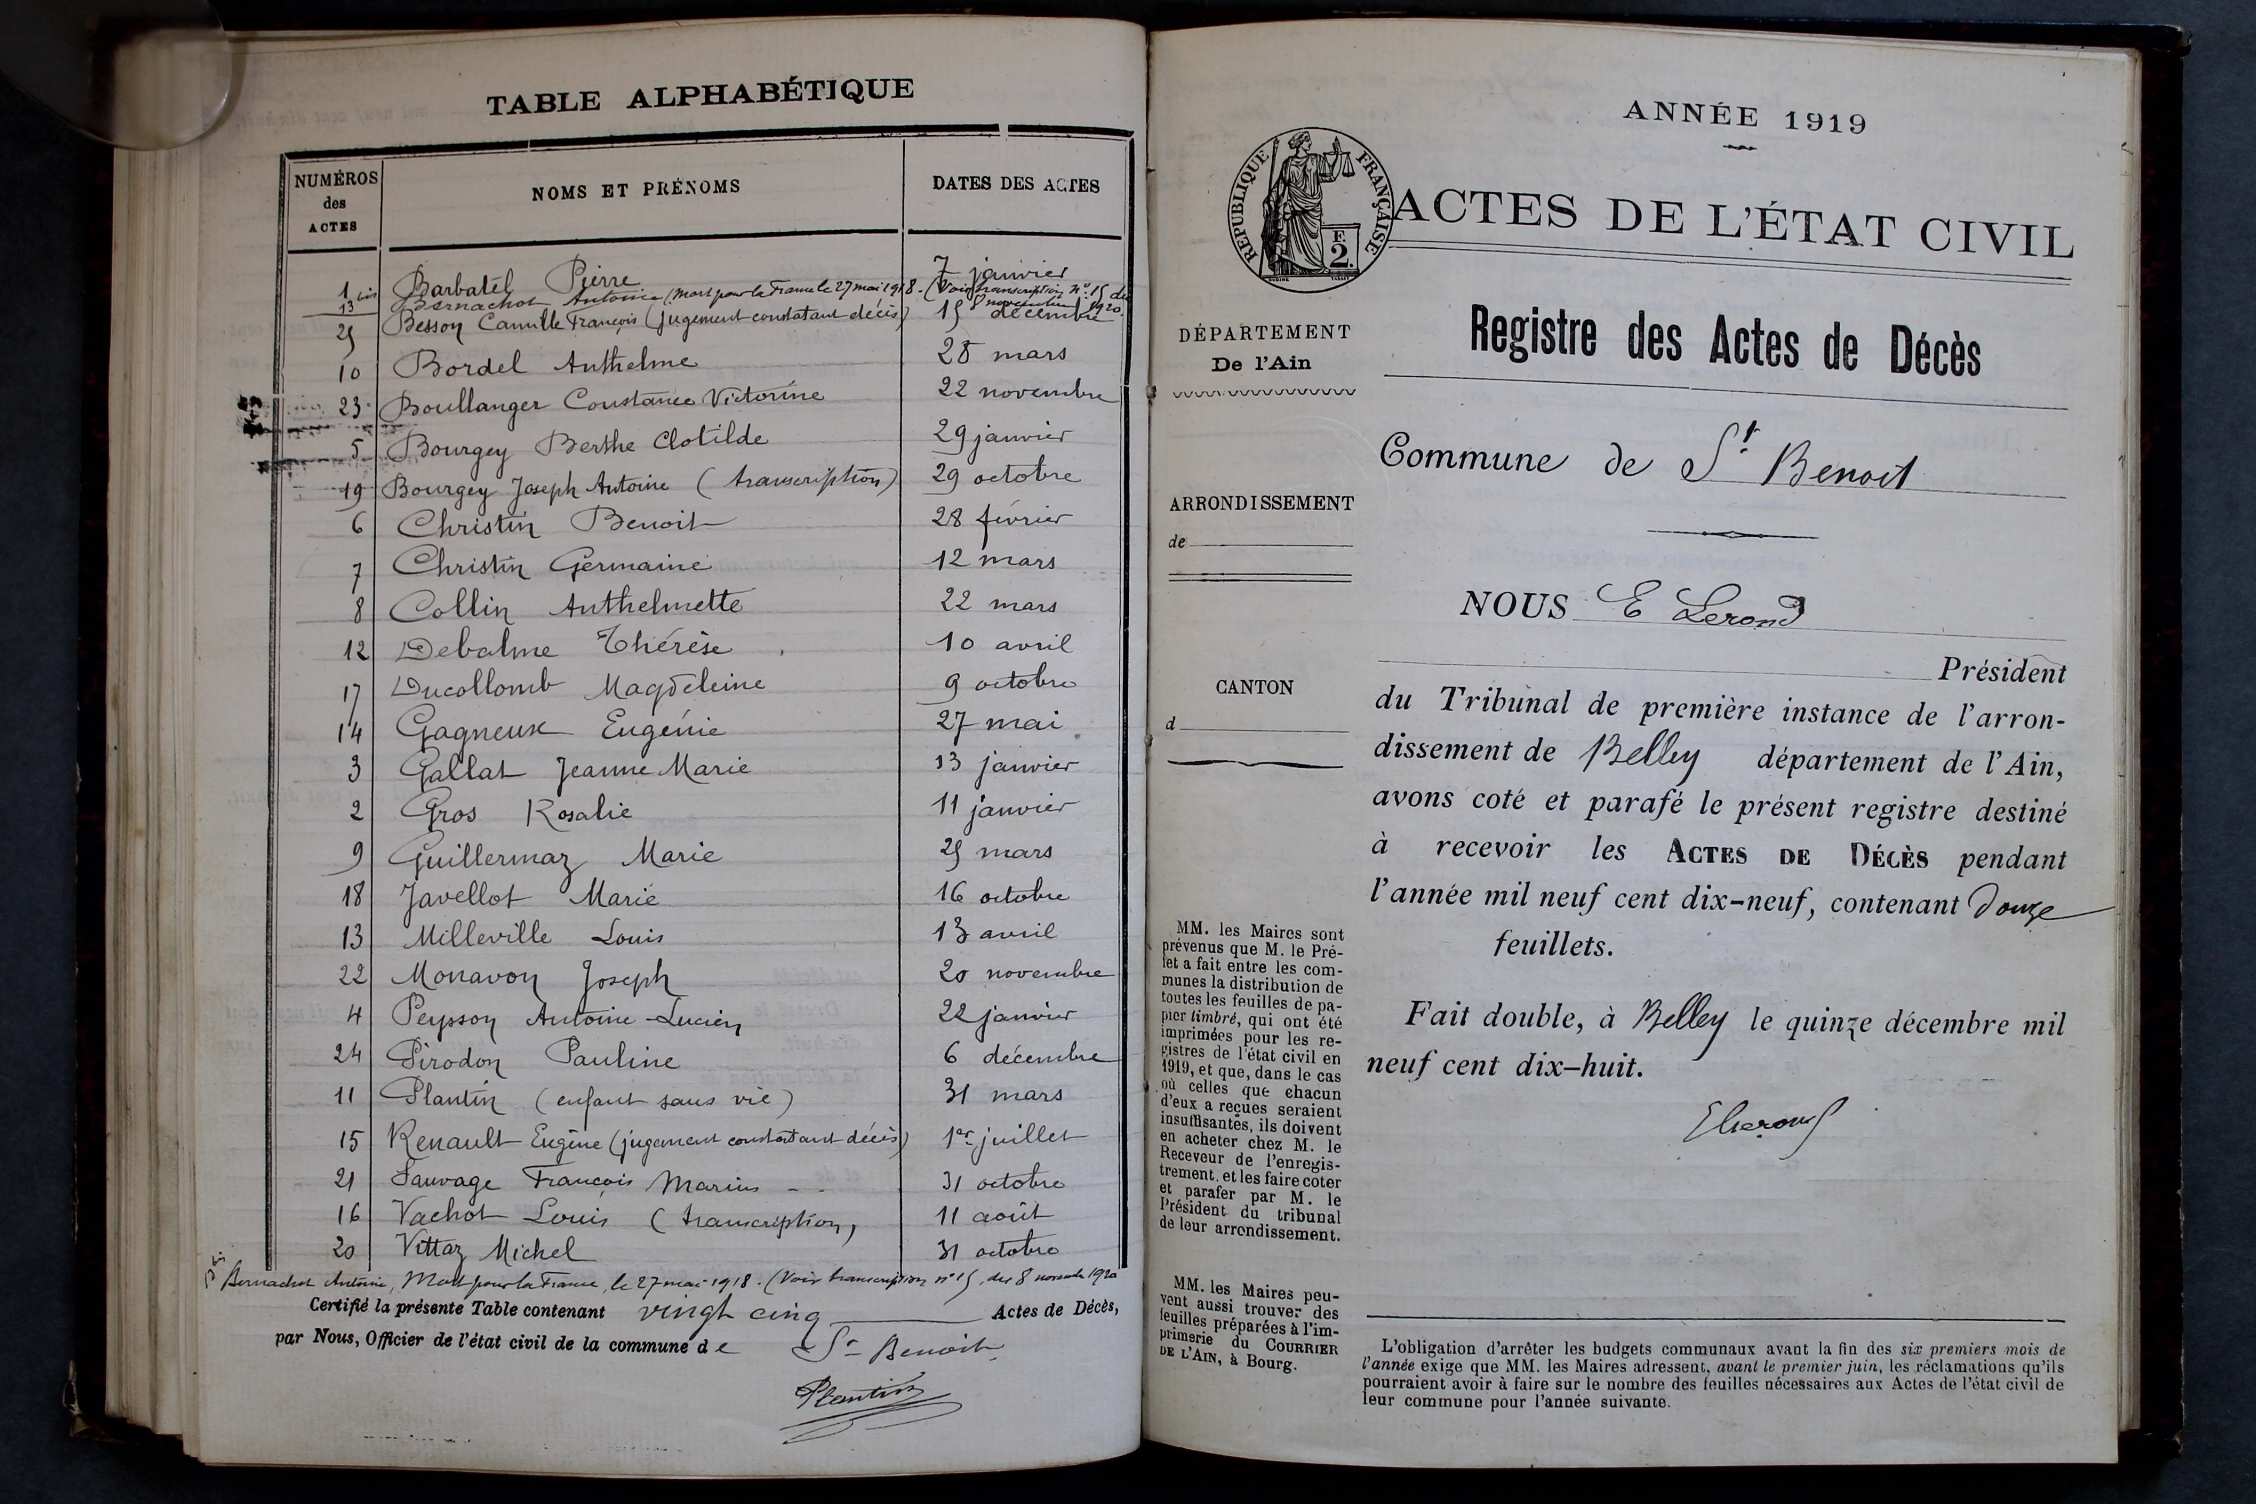 TABLE ALPHABÉTIQUE
NUMÉROS des ACTES NOMS ET PRÉNOMS DATES DES ACTES
1 Barbatel Pierre 7 janvier
13 bis Bernachot Antoine (Mort pour la France le 27 mai 1918. (Voir transcription n° 15 du 8 novembre 1920.
25 Besson Camille François (jugement constatant décès) 15 décembre
10 Bordel Anthelme 28 mars
23 Boullanger Constance Victorine 22 novembre
5 Bourgey Berthe Clotilde 29 janvier
19 Bourgey Joseph Antoine (transcription) 29 octobre
6 Christin Benoit 28 février
7 Christin Germaine 12 mars
8 Collin Anthelmette 22 mars
12 Debalme Thérèse 10 avril
17 Ducollomb Magdeleine 9 octobre
14 Gagneux Eugénie 27 mai
3 Gallat Jeanne Marie 13 janvier
2 Gros Rosalie 11 janvier
9 Guillermaz Marie 25 mars
18 Javellot Marie 16 octobre
13 Milleville Louis 13 avril
22 Monavon Joseph 20 novembre
4 Peysson Antoine-Lucien 22 janvier
24 Pirodon Pauline 6 décembre
11 Plantin (enfant sans vie) 31 mars
15 Renault Eugène (jugement constatant décès) 1er juillet
21 Sauvage François Marius 31 octobre
16 Vachot Louis (transcription) 11 août
20 Vittaz Michel 31 octobre
13 bis Bernachot Antoine, Mort pour la France, le 27 mai 1918. (Voir transcription n° 15, du 8 novembre 1920
Certifié la présente Table contenant vingt cinq Actes de Décès,
par Nous, Officier de l'état civil de la commune de St Benoit
Plantin
ANNÉE 1919
RÉPUBLIQUE FRANÇAISE
F.
2.
ACTES DE L'ÉTAT CIVIL
Registre des Actes de Décès
DÉPARTEMENT
De l'Ain
ARRONDISSEMENT
de
CANTON
d
MM. les Maires sont
prévenus que M. le Pré-
fet a fait entre les com-
munes la distribution de
toutes les feuilles de pa-
pier timbré, qui ont été
imprimées pour les re-
gistres de l'état civil en
1919, et que, dans le cas
où celles que chacun
d'eux a reçues seraient
insuffisantes, ils doivent
en acheter chez M. le
Receveur de l'enregis-
trement, et les faire coter
et parafer par M. le
Président du tribunal
de leur arrondissement.
MM. les Maires peu-
vent aussi trouver des
feuilles préparées à l'im-
primerie du COURRIER
DE L'AIN, à Bourg.
Commune de St Benoit
NOUS E Lerond
Président
du Tribunal de première instance de l'arron-
dissement de Belley département de l'Ain,
avons coté et parafé le présent registre destiné
à recevoir les ACTES DE DÉCÈS pendant
l'année mil neuf cent dix-neuf, contenant douze
feuillets.
Fait double, à Belley le quinze décembre mil
neuf cent dix-huit.
E Lerond
L'obligation d'arrêter les budgets communaux avant la fin des six premiers mois de
l'année exige que MM. les Maires adressent, avant le premier juin, les réclamations qu'ils
pourraient avoir à faire sur le nombre des feuilles nécessaires aux Actes de l'état civil de
leur commune pour l'année suivante.